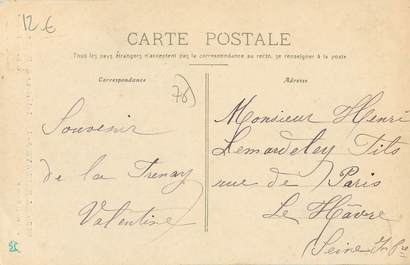 12 €
CARTE POSTALE
Tous les pays étrangers n'acceptent pas la correspondance au recto, se renseigner à la poste
Correspondance
Adresse
76
Souvenir
de la
Valentine
Monsieur Henri
Lemardeley Fils
rue de Paris
Le Hâvre
Seine Infre